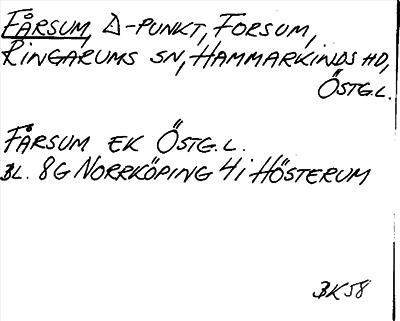 FÅRSUM, Δ-PUNKT, FORSUM,
RINGARUMS SN, HAMMARKINDS HD,
ÖSTG.L.
FÅRSUM EK ÖSTG.L.
BL. 8G NORRKÖPING 4i HÖSTERUM
BK58